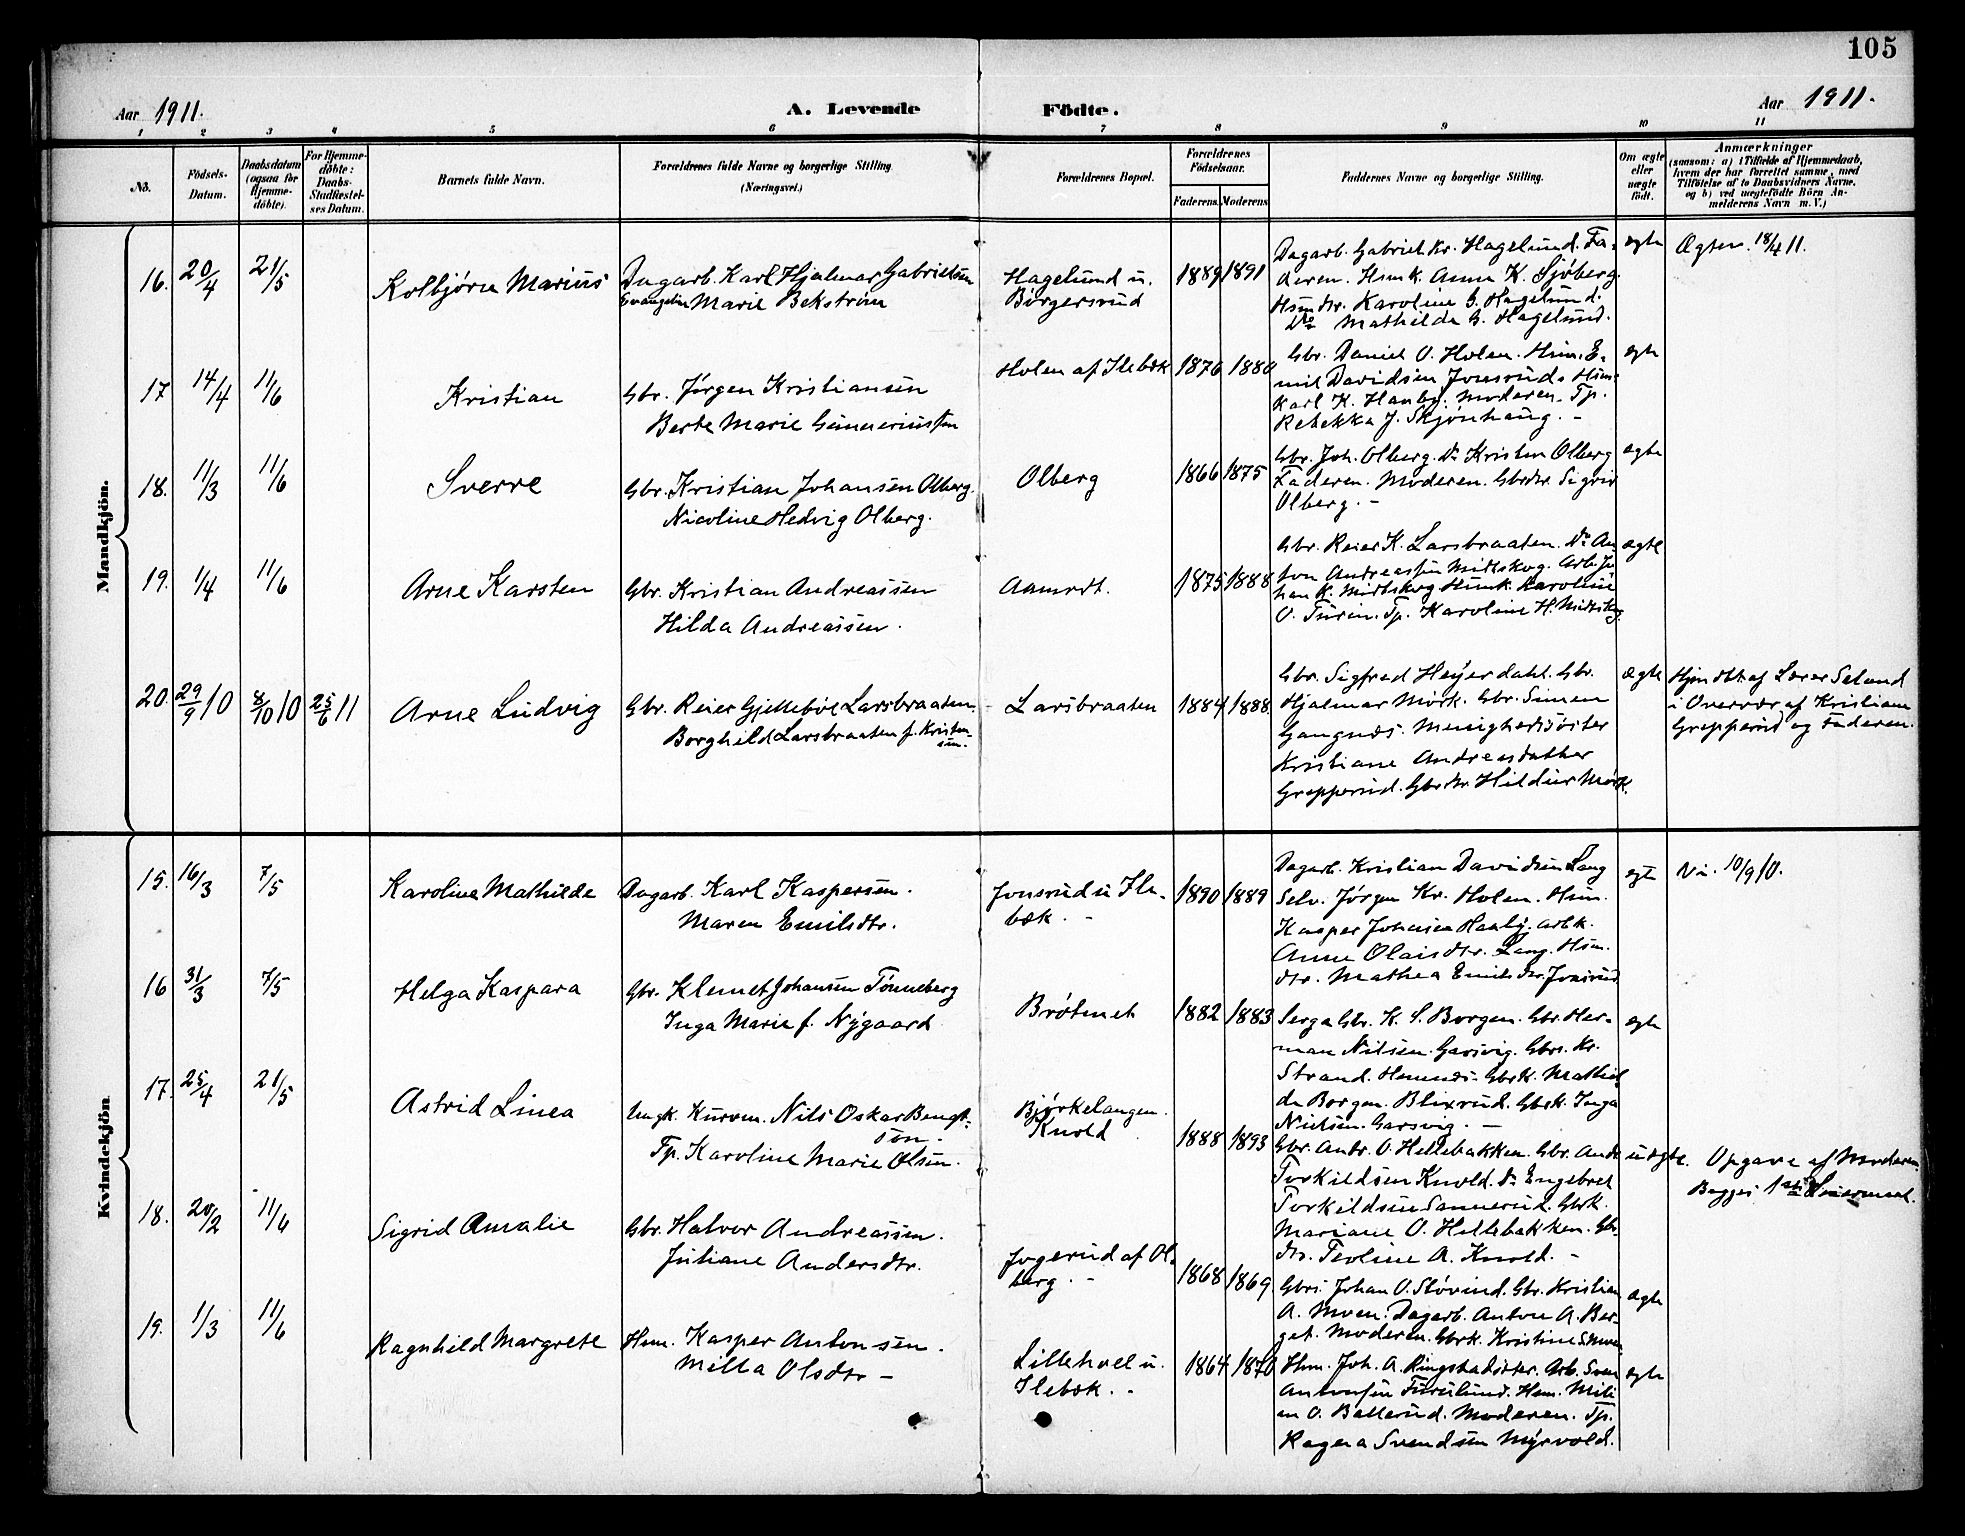 105
Aar 1911.
A. Levende Födte.
Aar 1911.
1 2 3 4 5 6 7 8 9 10 11
No.
Fødsels-
Datum.
Daabsdatum
(ogsaa for
Hjemme-
døbte).
For Hjemme-
døbte:
Daabs-
Stadfæstel-
ses Datum.
Barnets fulde Navn.
Forældrenes fulde Navne og borgerlige Stilling.
(Næringsvei.)
Forældrenes Bopæl.
Forældrenes
Fødselsaar.
Faderens. Moderens.
Faddernes Navne og borgerlige Stilling.
Om ægte
eller
uægte
født.
Anmærkninger
(saasom: a) i Tilfælde af Hjemmedaab,
hvem der har forrettet samme, med
Tilføielse af to Daabsvidners Navne,
og b) ved uægtefødte Børn An-
melderens Navn m. V.)
Mandkjön.
16. 20/4 21/5
Kolbjørn Marius
Dagarb. Karl Hjalmar Gabrielsen
Evangeline Marie Bekström
Hagelund u.
Börgersrud
1889 1891
Dagarb. Gabriel Kr. Hagelund. Fa-
deren. Hsmk. Anna K. Sjøberg.
Hsmdtr. Karoline G. Hagelund.
Do Mathilde G. Hagelund.
egte
Ægtev. 18/4 11.
17 14/4 11/6
Kristian
Gbr. Jörgen Kristiansen
Berte Marie
Holen af Ilebæk
1876 1880
Gbr. Daniel O. Holen. Hsm. E-
mil Davidsen Jonsrud. Hsm.
Karl K. Haneby. Moderen. Tp.
Rebekka J. Skjønhaug. -
egte
18. 11/3 11/6
Sverre
Gbr. Kristian Johansen Olberg.
Nicoline Hedvig Olberg.
Olberg
1866 1875
Gbr. Joh. Olberg. Do Kristen Olberg
Faderen. Moderen. Gbrdtr. Sigrid
Olberg. -
egte
19. 1/4 11/6
Arne Karsten
Gbr. Kristian Andreassen
Hilda Andreassen.
Aamodt.
1875 1888
Gbr. Reier K. Larsbraaten. Do An-
ton Andreassen Midtskog. Arb. Jo-
han K. Midtskog Hsmk. Karoline
O. Furin. Tp. Karoline H. Midtskog.
ægte
20. 29/9 10 8/10 10 25/6 11
Arne Ludvig
Gbr. Reier Gjellebøl Larsbraaten.
Borghild Larsbraaten f. Kristen-
sen.
Larsbraaten
1884 1888
Gbr. Sigfred Heyerdahl. Gbr.
Hjalmar Mörk. Gbr. Simen
Gangnæs. Menighedssöster
Kristiane Andreasdatter
Grepperud. Gbrdtr. Hildur Mörk.
ægte
Hjmdbt. af Lærer Seland
i Overvær af Kristiane
Grepperud og Faderen.
Kvindekjön
15. 16/3 7/5
Karoline Mathilde
Dagarb. Karl Kaspersen.
Maren Emilsdtr.
Jonsrud u Ile-
bæk. -
1890 1889
Dagarb. Kristian Davidsen Lang
Selv. Jörgen Kr. Holen. Hsm.
Kasper Johansen Haneby. Arbk.
Anne Olaisdtr. Lang. Hsm.
dtr. Mathea Emilsdtr. Jonsrud.
egte
Vi. 10/9 10.
16 31/3 7/5
Helga Kaspara
Gbr. Klemet Johansen Tönneberg
Inga Marie f. Nygaard
Bråtenet
1882 1883
Serga Gbr. K. S. Borgen. Gbr. Her-
man Nilsen. Garsvig. Gbrs. Kr.
Strand. Hemnæs. Gbrk. Mathil-
da Borgen. Blixrud. Gbrk. Inga
Nielsen. Garsvig. -
egte
17. 25/4 21/5
Astrid Linea
Ungk. Kurvm. Nils Oskar Bengt-
son.
Tp. Karoline Marie Olsen.
Bjørkelangen.
Knold
1888 1893
Gbr. Andr. O. Hellebakken. Gbr. Andr.
Torkildsen Knold. Do Engebret
Torkildsen Sannerud. Gbrk.
Mariane O. Hellebakken. Gbr
dtr. Teoline A. Knold. -
uægte.
Opgave af Moderen
Begges 1ste Leiermaal.
18. 20/2 11/6
Sigrid Amalie
Gbr. Halvor Andreassen.
Juliane Andersdtr.
Jogerud af Ol-
berg. -
1868 1869
Gbrs. Johan O. Støvind. Gbr. Kristian
A. Moen. Dagarb. Anton A. Ber-
get. Moderen. Gbrk. Kristine S. Moen
ægte
19. 1/3 11/6
Ragnhild Margrete
Hsm. Kasper Antonsen.
Milla Olsdtr -
Lillehoel u.
Ilebæk. -
1864 1870
Hsm. Joh. A. Ringstadsæter. Arb. Sven
Antonsen Furulund. Hsm. Mili-
an O. Ballerud. Moderen. Tp.
Ragna Svendsen Myrvold.
egte